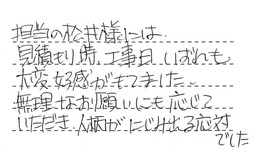 担当の松井様には
見積もり時、工事日、いずれも
大変好感がもてました。
無理なお願いにも応じて
いただき人柄がにじみ出る応対
でした